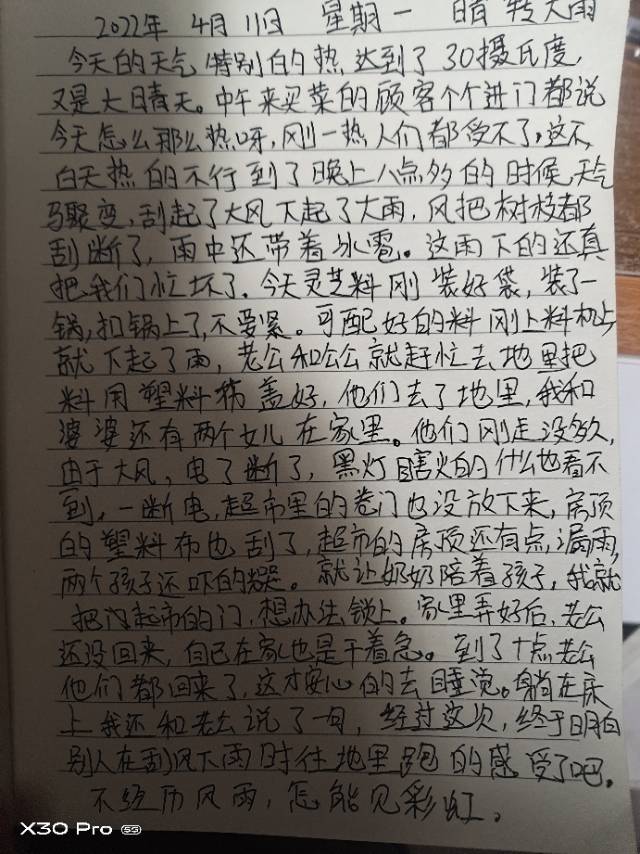 2022年 4月 11日 星期一 晴转大雨
今天的天气特别的热达到了30摄氏度,
又是大晴天。中午来买菜的顾客个个进门都说
今天怎么那么热呀,刚一热人们都受不了,这不,
白天热的不行到了晚上八点多的时候,天气
骤变,刮起了大风下起了大雨,风把树枝都
刮断了,雨中还带着冰雹。这雨下的还真
把我们忙坏了。今天灵芝料刚装好袋,装了一
锅,扣锅上了,不要紧。可配好的料刚上料机上
就下起了雨,老公和公公就赶忙去地里把
料用塑料布盖好,他们去了地里,我和
婆婆还有两个女儿在家里。他们刚走没多久,
由于大风,电了断了,黑灯瞎火的什么也看不
到,一断电,超市里的卷门也没放下来,房顶
的塑料布也刮了,超市的房顶还有点漏雨,
两个孩子还吓的哭。就让奶奶陪着孩子,我就
把超市的门,想办法锁上。家里弄好后,老公
还没回来,自己在家也是干着急。到了十点老公
他们都回来了,这才安心的去睡觉。躺在床
上我还和老公说了一句,经过这次,终于明白
别人在刮风下雨时往地里跑的感受了吧。
不经历风雨,怎能见彩虹。
X30 Pro 5G